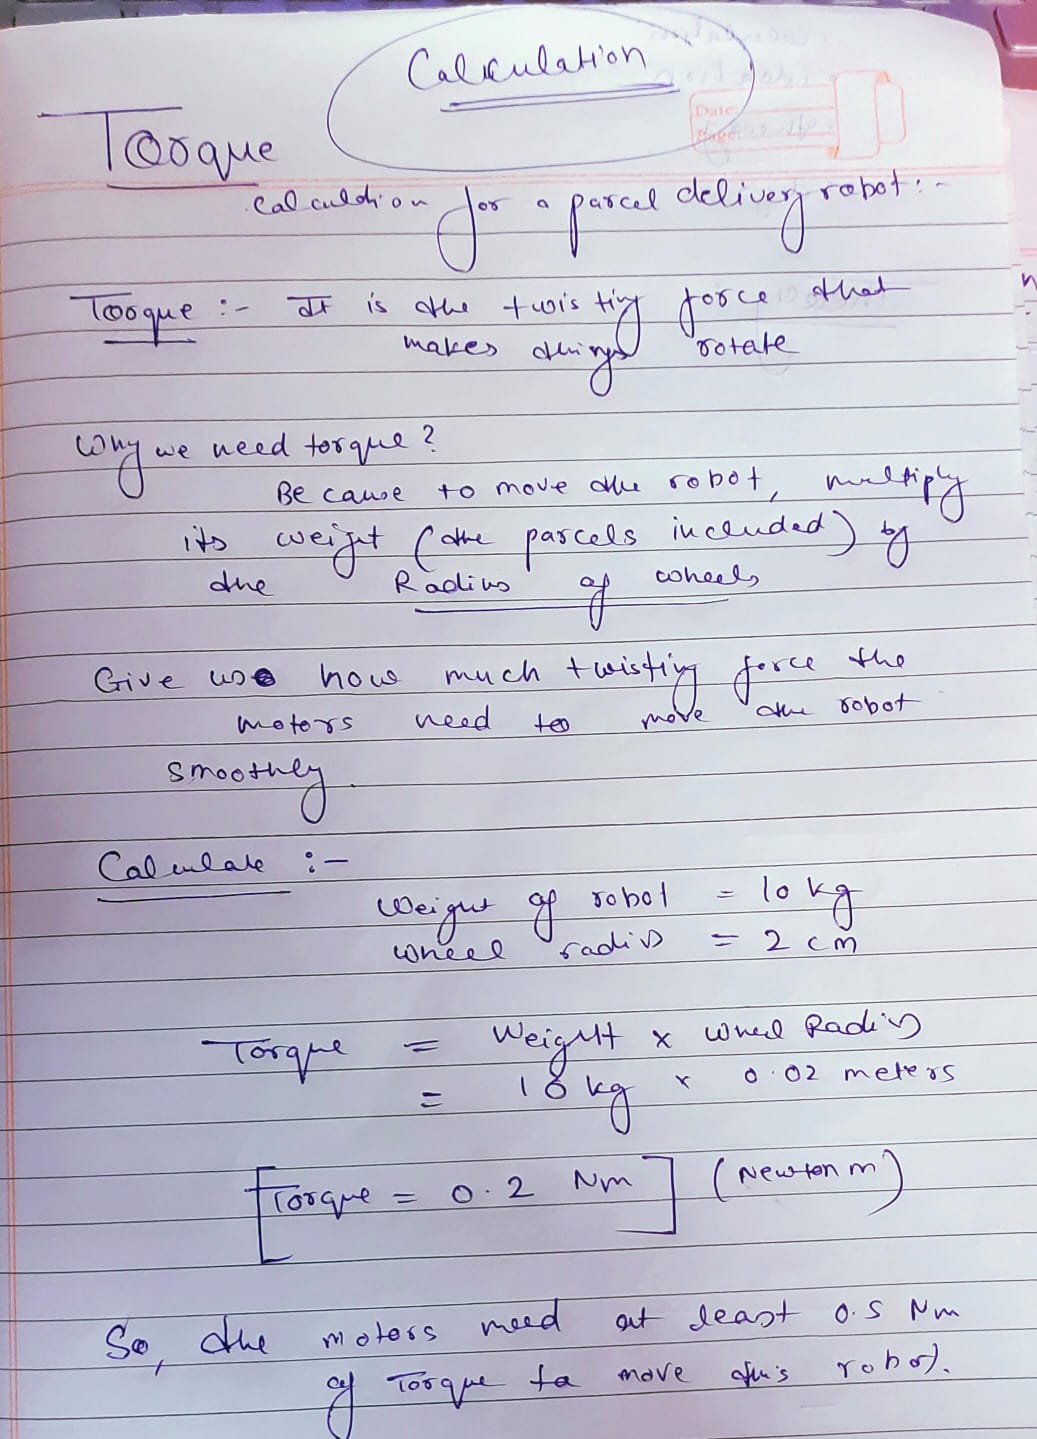 Calculation
Date:
Page:
Torque
Calculation for a parcel delivery robot :-
Torque :- It is the twisting force that
makes things rotate
Why we need torque ?
Because to move the robot, multiply
its weight (the parcels included) by
the Radius of wheels
Give us how much twisting force the
motors need to move the robot
smoothly.
Calculate :-
Weight of robot = 10 kg
wheel radius = 2 cm
Torque = Weight x Wheel Radius
= 10 kg x 0.02 meters
[Torque = 0.2 Nm] (Newton m)
So, the motors need at least 0.5 Nm
of Torque to move this robot.